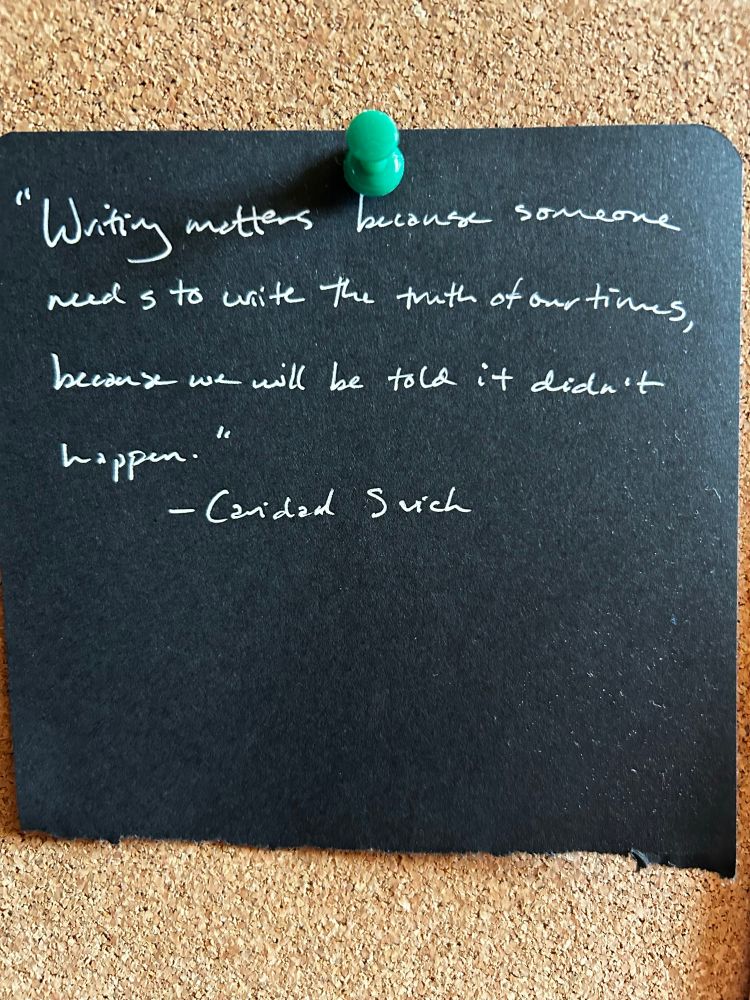 "Writing matters because someone
needs to write the truth of our times,
because we will be told it didn't
happen."
- Caridad Svich